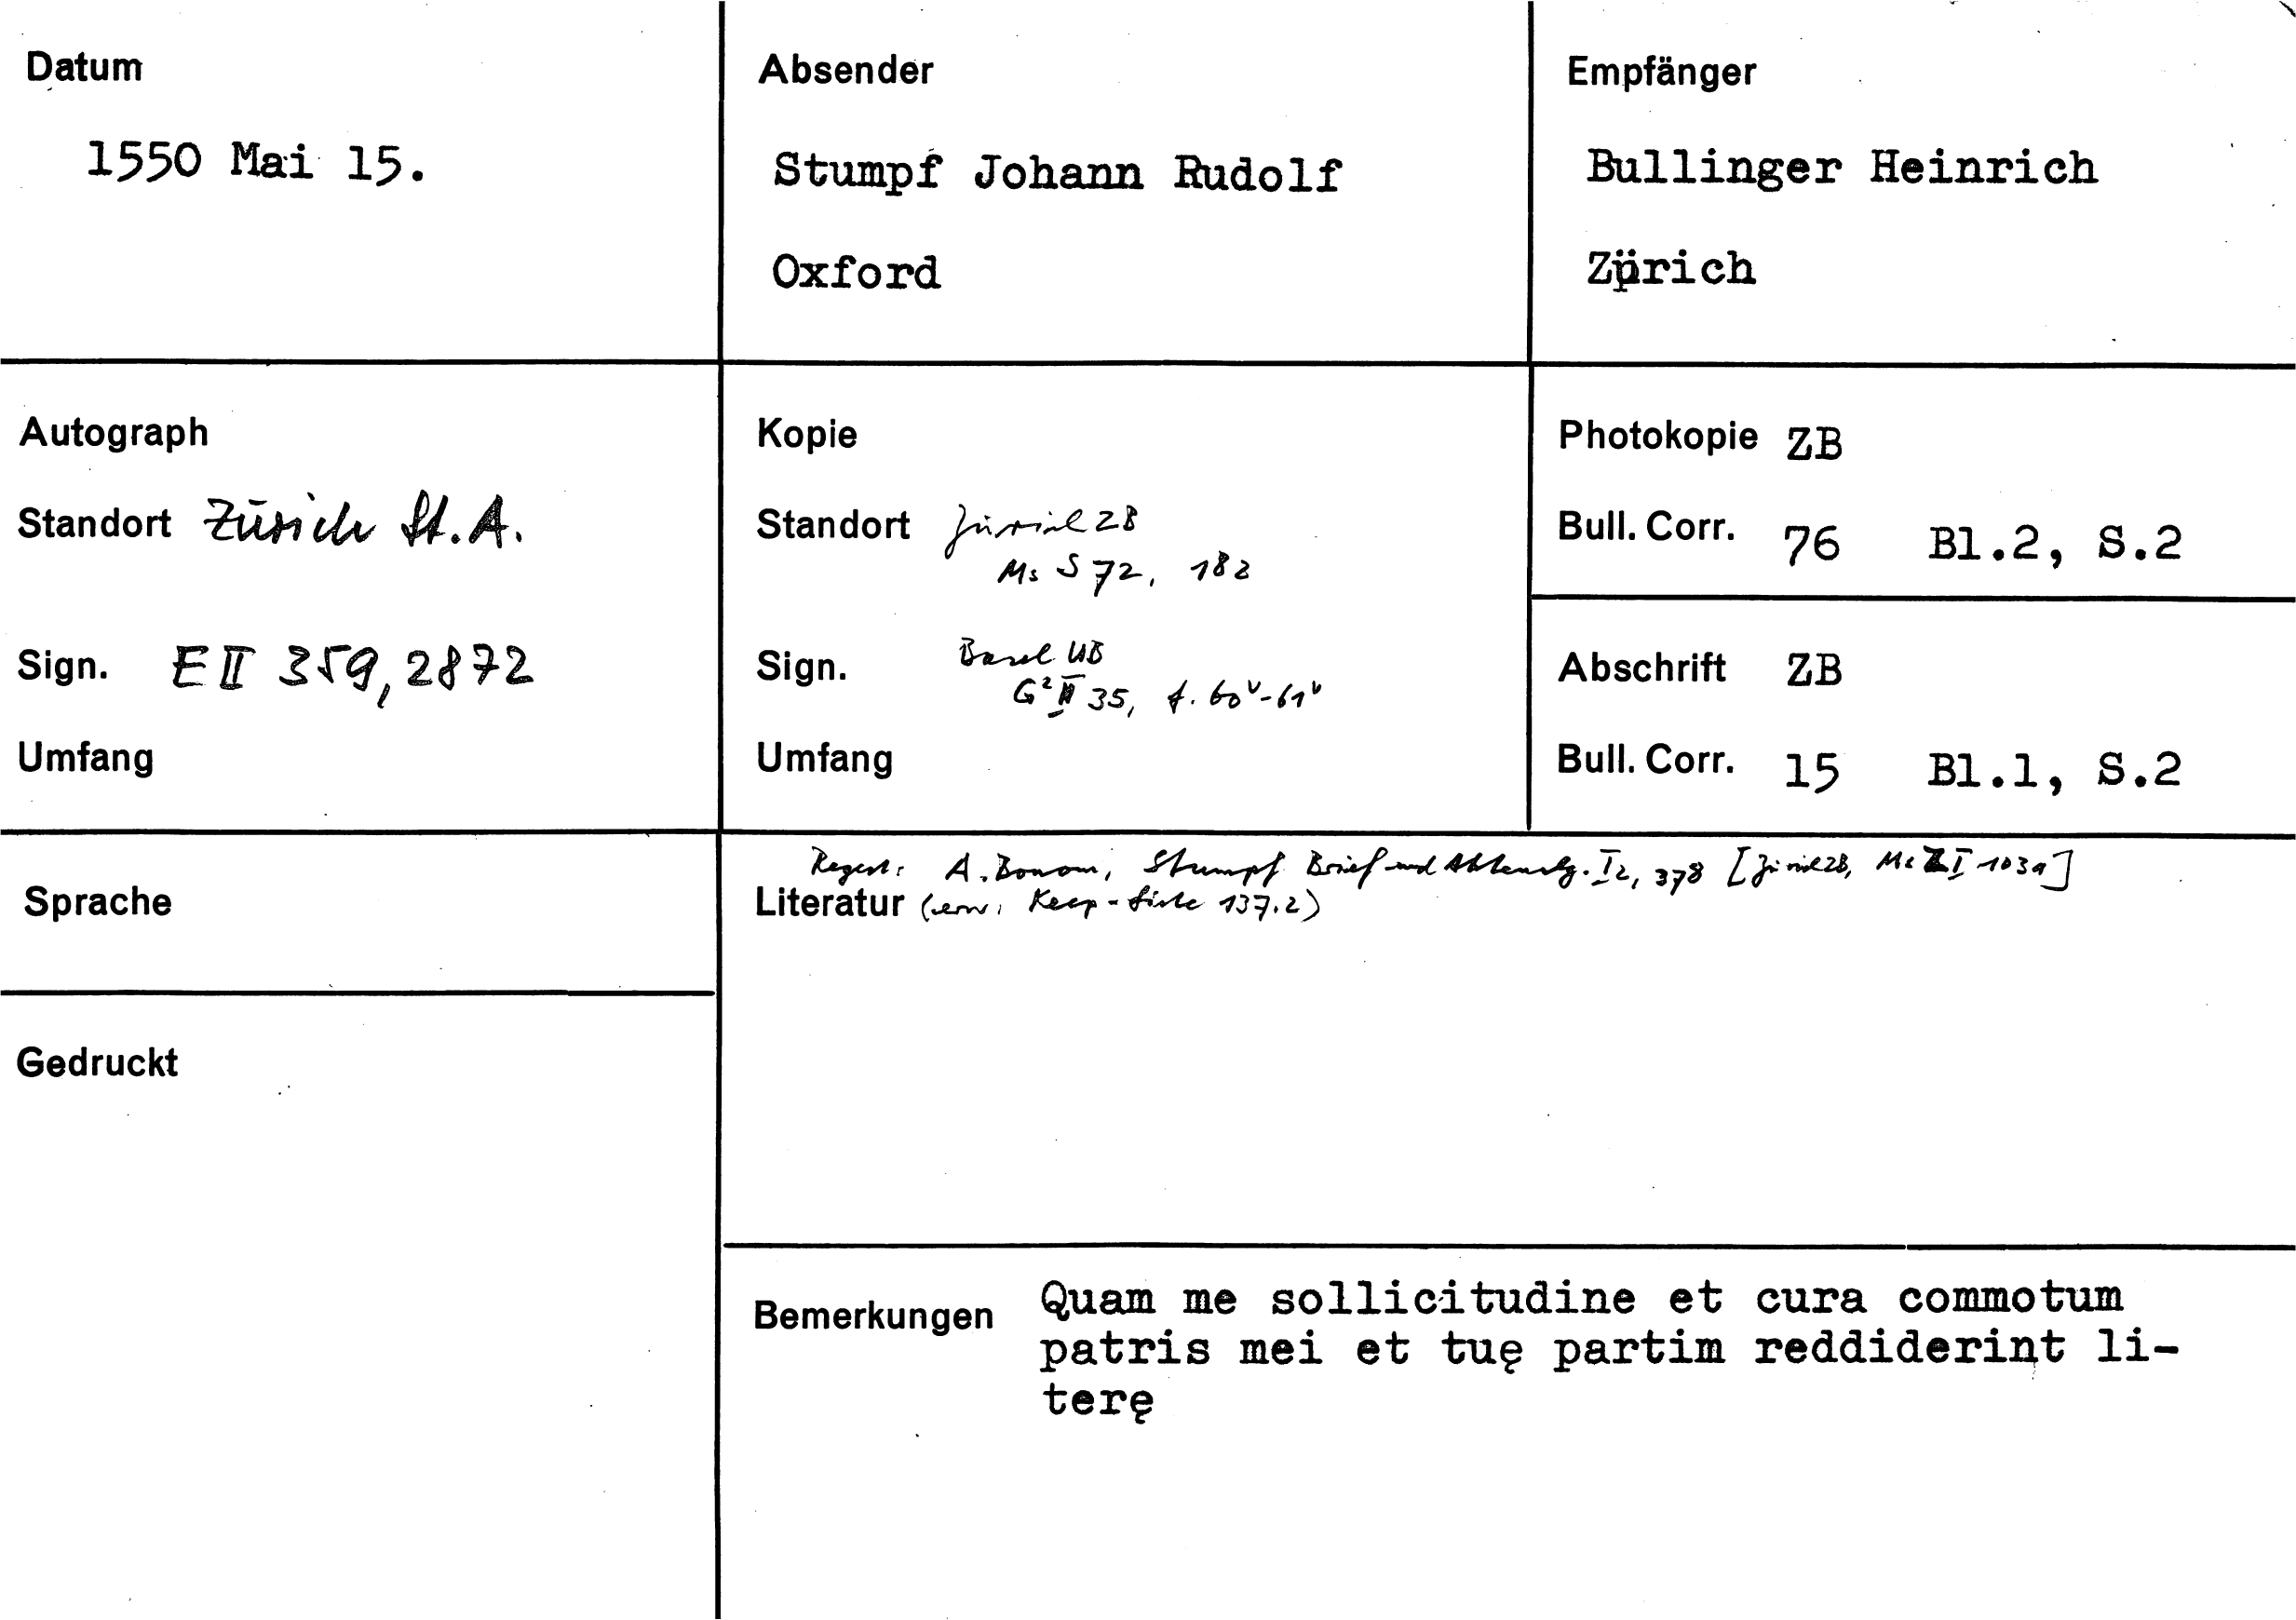 Datum
1550 Mai 15.
Absender
Stumpf Johann Rudolf
Oxford
Empfänger
Bullinger Heinrich
Zürich
Autograph
Standort Zürich St.A.
Sign. E II 359, 2872
Umfang
Kopie
Standort Zürich ZB
Ms S 72, 182
Sign. Basel UB
G² II 35, f. 60v-61v
Umfang
Photokopie ZB
Bull. Corr. 76 Bl.2, S.2
Abschrift ZB
Bull. Corr. 15 Bl.1, S.2
Sprache
Gedruckt
Regest: A. Bonom, Stumpf Brief und I2, 378 [Zürich ZB, Ms Z I 103a]
Literatur 137.2)
Bemerkungen Quam me sollicitudine et cura commotum
patris mei et tuę partim reddiderint li-
terę